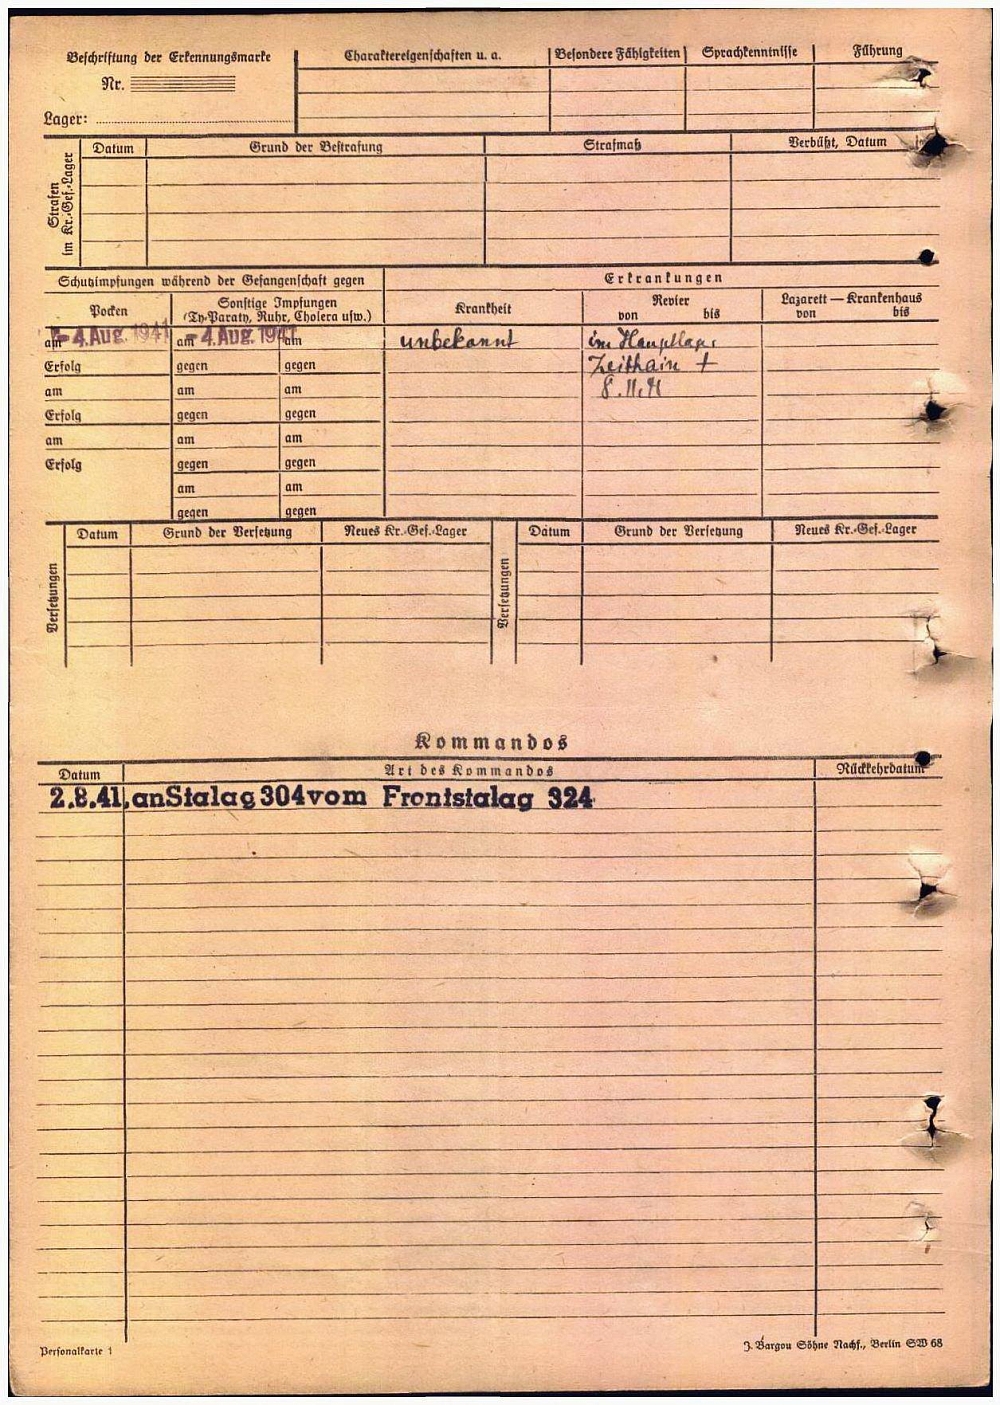 Beschriftung der Erkennungsmarke
Nr.
Lager:
Charaktereigenschaften u. a.
Besondere Fähigkeiten
Sprachkenntnisse
Führung
Strafen im Kr.-Gef.-Lager
Datum
Grund der Bestrafung
Strafmaß
Verbüßt, Datum
Schutzimpfungen während der Gefangenschaft gegen
Erkrankungen
Pocken
Sonstige Impfungen
(Ty-Paraty, Ruhr, Cholera usw.)
Krankheit
Revier
von bis
Lazarett — Krankenhaus
von bis
am -4. Aug. 1941 am -4. Aug. 1941 am unbekannt im Hauptlager
Erfolg gegen gegen Zeithain +
am am am 8.11.41
Erfolg gegen gegen
am am am
Erfolg gegen gegen
am am
gegen gegen
Versetzungen
Datum Grund der Versetzung Neues Kr.-Gef.-Lager
Versetzungen
Datum Grund der Versetzung Neues Kr.-Gef.-Lager
Kommandos
Datum Art des Kommandos Rückkehrdatum
2.8.41. an Stalag 304 vom Frontstalag 324
Personalkarte 1
J. Bargou Söhne Nachf., Berlin SW 68